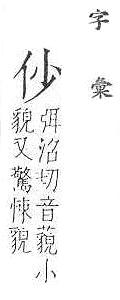 字彙
仯
弭沼切音藐小
貌又驚悚貌